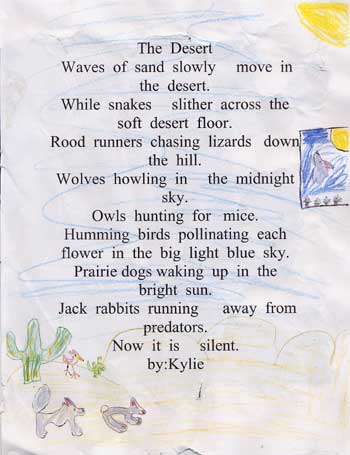 The Desert
Waves of sand slowly move in
the desert.
While snakes slither across the
soft desert floor.
Rood runners chasing lizards down
the hill.
Wolves howling in the midnight
sky.
Owls hunting for mice.
Humming birds pollinating each
flower in the big light blue sky.
Prairie dogs waking up in the
bright sun.
Jack rabbits running away from
predators.
Now it is silent.
by:Kylie